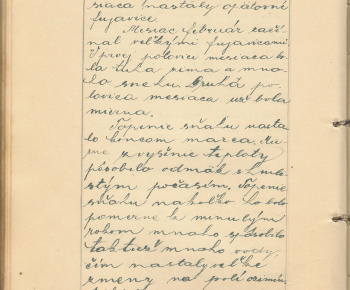 siaca nastaly opätovné
fujavice.
Mesiac február začí-
nal veľkými fujavicami
V prvej polovici mesiaca bo-
la tuhá zima a mno-
ho snehu. Druhá po-
lovica mesiaca už bola
mierna.
Topenie sňahu nasta-
lo koncom marca.
zvýšenie teploty
pôsobilo odmäk s hmli-
stým počasím. Topenie
sňahu nakoľko ho bolo
pomerne k minulým
rokom mnoho spôsobilo
taktiež mnoho vody,
čím nastaly veľké
zmeny na poli ozimín